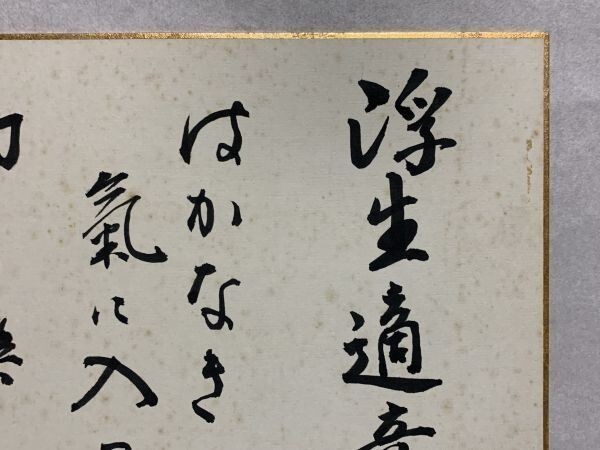 浮生適意
はかなき
氣に入